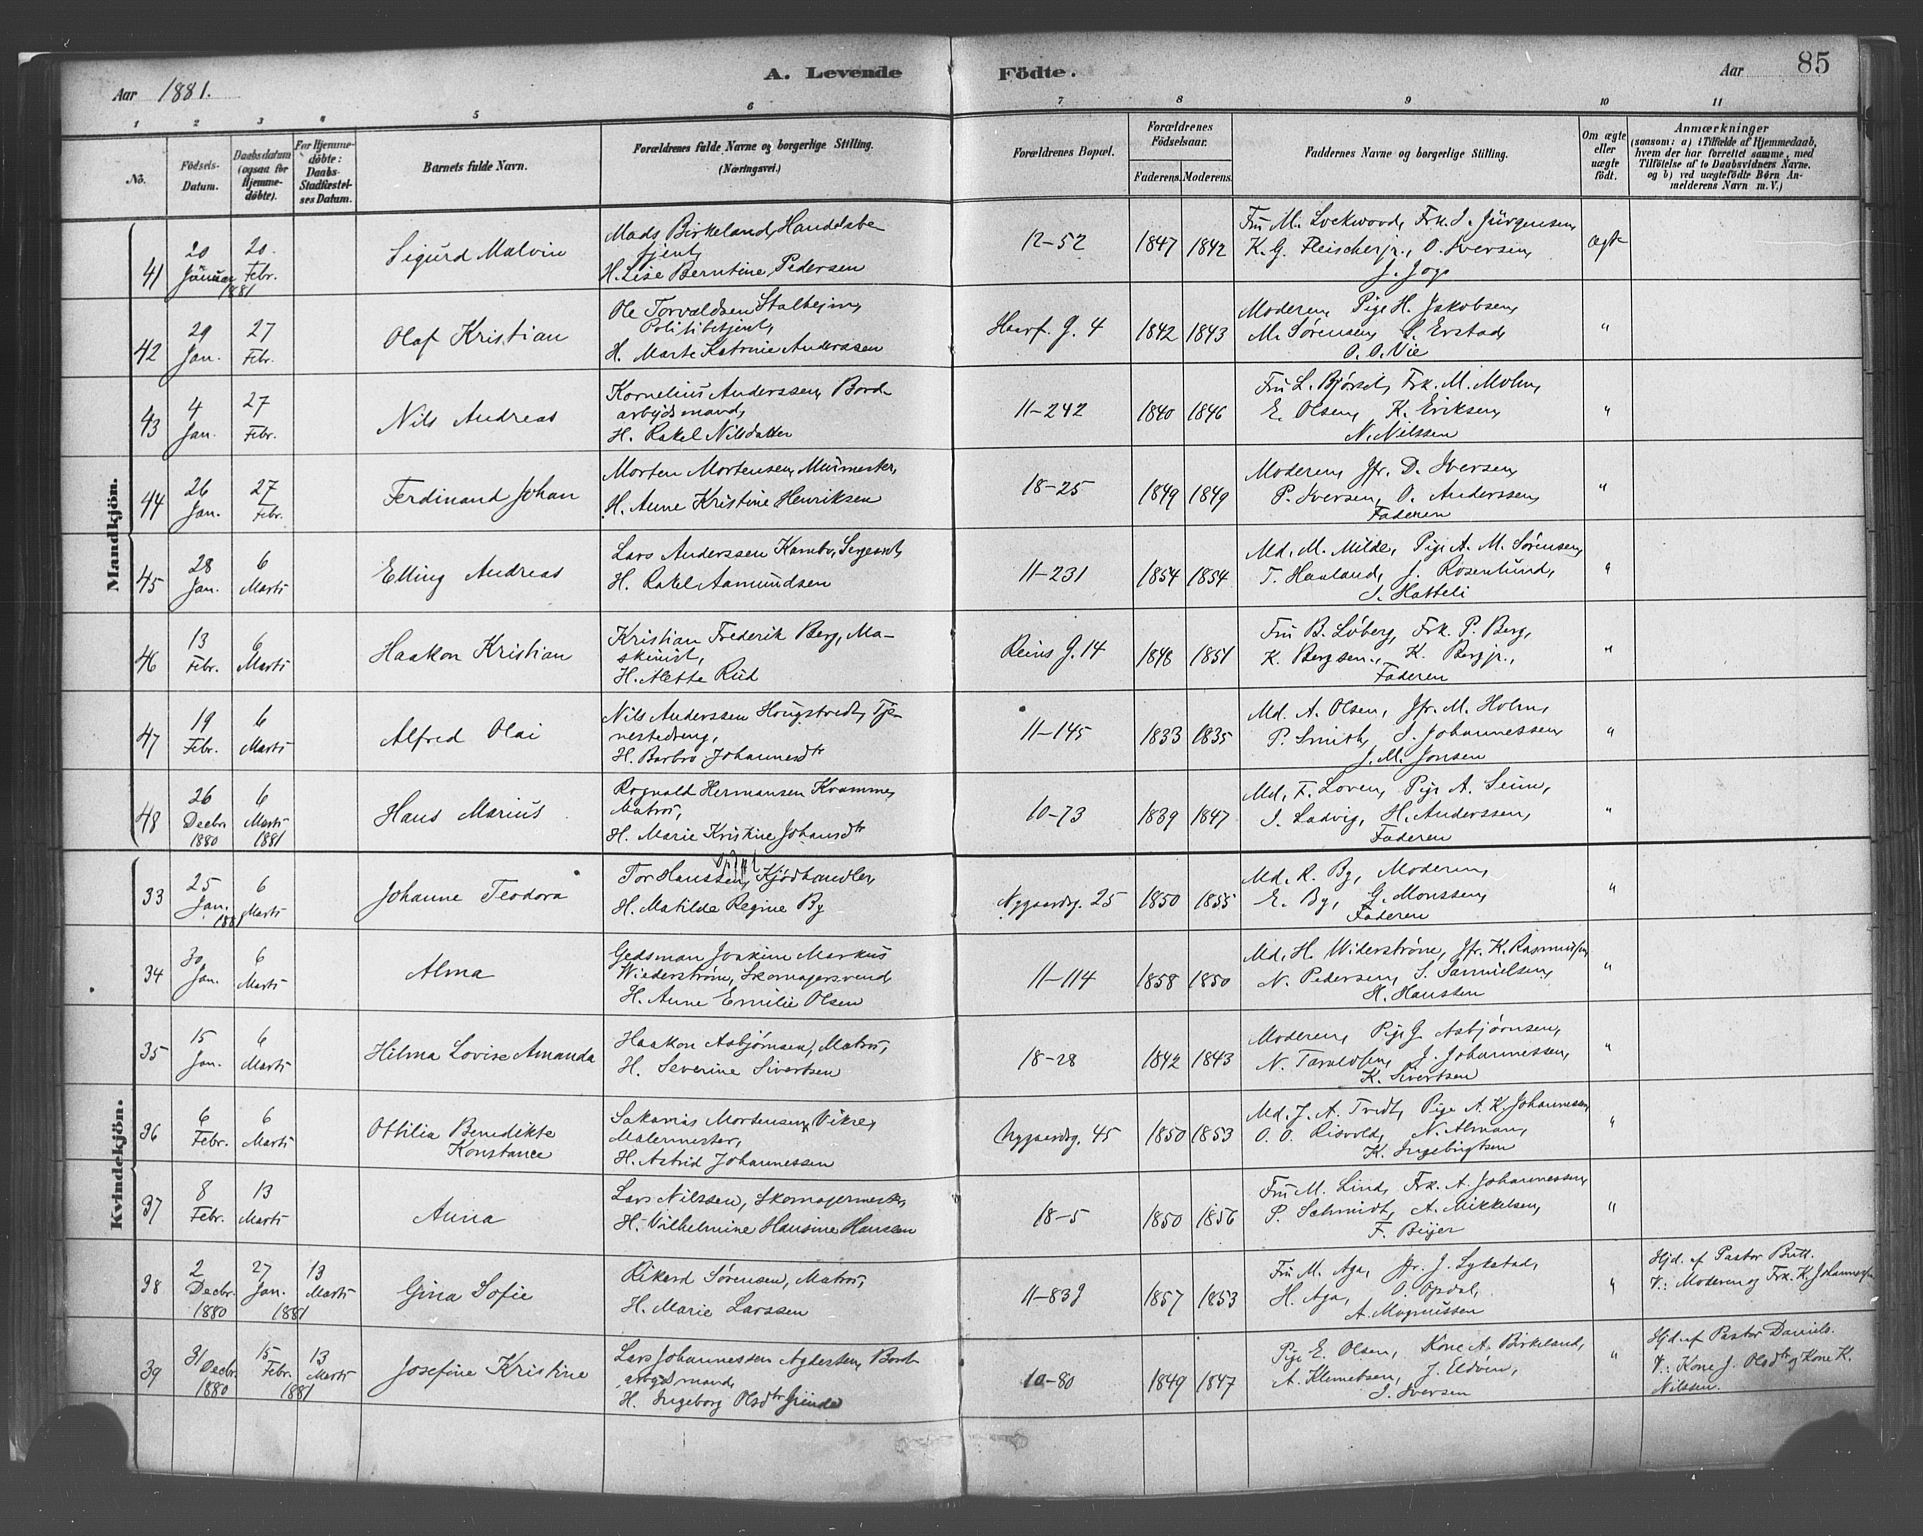 85
A. Levende Födte.
Aar 1881.
Aar
1 2 3 4 5 6 7 8 9 10 11
No.
Födsels-Datum.
Daabsdatum (ogsaa for Hjemmedöbte).
For Hjemmedöbte: Daabs-Stadfæstelses Datum.
Barnets fulde Navn.
Forældrenes fulde Navne og borgerlige Stilling. (Næringsvei.)
Forældrenes Bopæl.
Forældrenes Födselsaar.
Faderens. Moderens.
Faddernes Navne og borgerlige Stilling.
Om ægte eller uægte födt.
Anmærkninger
(saasom: a) i Tilfælde af Hjemmedaab, hvem der har forrettet samme, med Tilföielse af to Daabsvidners Navne. og b) ved uægtefödte Börn Anmelderens Navn m. V.)
Mandkjön.
41 20 Januar 20 Febr. 1881 Sigurd Malvin Mads Birkeland, Handelsbetjent, H. Lise Berntine Pedersen 12-52 1847 1842 Fru M. Lockwood, Frk. J. Jürgensen, K. G. Fleischer jr., O. Iversen, ægte
42 29 Jan. 27 Febr. Olaf Kristian Ole Torvaldsen Stalheim, Politibetjent, H. Marte Katrine Anderssen G. 4 1842 1843 Moderen, Pige H. Jakobsen, M. Sørensen, S. Erstad, O. O. Vie "
43 4 Jan. 27 Febr. Nils Andreas Kornelius Anderssen, Bordarbejdsmand, H. Rakel Nilsdatter 11-242 1840 1846 Fru L. Bjørset, Frk. M. Mohn, E. Olsen, K. Eriksen, N. Nilssen "
44 26 Jan. 27 Febr. Ferdinand Johan Morten Mortensen, Murmester, H. Anne Kristine Henriksen 18-25 1849 1849 Moderen, Jfr. D. Iversen, P. Iversen, O. Anderssen, Faderen "
45 28 Jan. 6 Marts Elling Andreas Lars Anderssen Kambo, Sergeant, H. Rakel Aamundsen 11-231 1854 1854 Md. M. Milde, Pige A. M. Sørensen, T. Haaland, J. Rosenlund, J. Hatteli "
46 13 Febr. 6 Marts Haakon Kristian Kristian Frederik Berg, Maskinist, H. Alette Rud Reins G. 14 1848 1851 Fru B. Løberg, Frk. P. Berg, K. Bergsen, K. Berg jr., Faderen "
47 19 Febr. 6 Marts Alfred Olai Nils Anderssen Hougstvedt, Tjenestedreng, H. Barbro Johannesdtr 11-145 1833 1835 Md. A. Olsen, Jfr. M. Holm, P. Smith, J. Johannessen, J. M. Jonsen "
48 26 Decbr. 1880 6 Marts 1881 Hans Marius Rognald Hermansen Kvamme, Matros, H. Marie Kristine Johansdtr 10-73 1839 1847 Md. F. Loven, Pige A. Seim, J. Ladvig, H. Anderssen, Faderen "
Kvindekjön.
33 25 Jan. 1881 6 Marts Johanne Teodora Tor Hanssen, Kjødhandler, H. Matilde Regine By Nygaardsg. 25 1850 1855 Md. R. By, Moderen, E. By, G. Monssen, Faderen "
34 30 Jan. 6 Marts Alma Gedsman Joakim Markus Wiederstrøm, Skomagersvend H. Anne Emilie Olsen 11-114 1858 1850 Md. H. Widerstrøm, Jfr. K. Rasmussen N. Pedersen, S. Samuelsen, H. Hanssen "
35 15 Jan. 6 Marts Hilma Lovise Amanda Haakon Asbjørnsen, Matros, H. Severine Sivertsen 18-28 1842 1843 Moderen, Pige G. Asbjørnsen, N. Taraldsen, J. Johannessen, K. Sivertsen "
36 6 Febr. 6 Marts Ottilia Benedikte Konstance Sakarias Mortensen Vikre, Malermester, H. Astrid Johannessen Nygaardsg. 45 1850 1853 Md. J. A. Tvedt, Pige A. K. Johannessen O. O. Risvold, N. Alman, K. Ingebrigtsen "
37 8 Febr. 13 Marts Anna Lars Nilssen, Skomagermester, H. Vilhelmine Hansine Hanssen 18-5 1850 1856 Fru M. Lind, Frk. A. Johannessen, P. Schmidt, A. Mikkelsen, F. Beyer "
38 2 Decbr. 1880 27 Jan. 1881 13 Marts Gina Sofie Rikard Sørensen, Matros, H. Marie Larssen 11-83 1857 1853 Fru M. Aga, Jfr. J. Lykstad, H. Aga, O. Opdal, A. Magnussen " Hjd. af Pastor Bull. V.: Moderen og Frk. K. Johannessen
39 31 Decbr. 1880 15 Febr. 1881 13 Marts Josefine Kristine Lars Johannessen Agdesten, Bordarbejdsmand, H. Ingeborg Olsdtr Grinde 10-80 1849 1847 Pige E. Olsen, Kone A. Birkeland, A. Klemetsen, J. Eldøen, J. Iversen " Hjd. af Pastor Daniels. V.: Kone J. Olsdtr og Kone K. Nilssen.